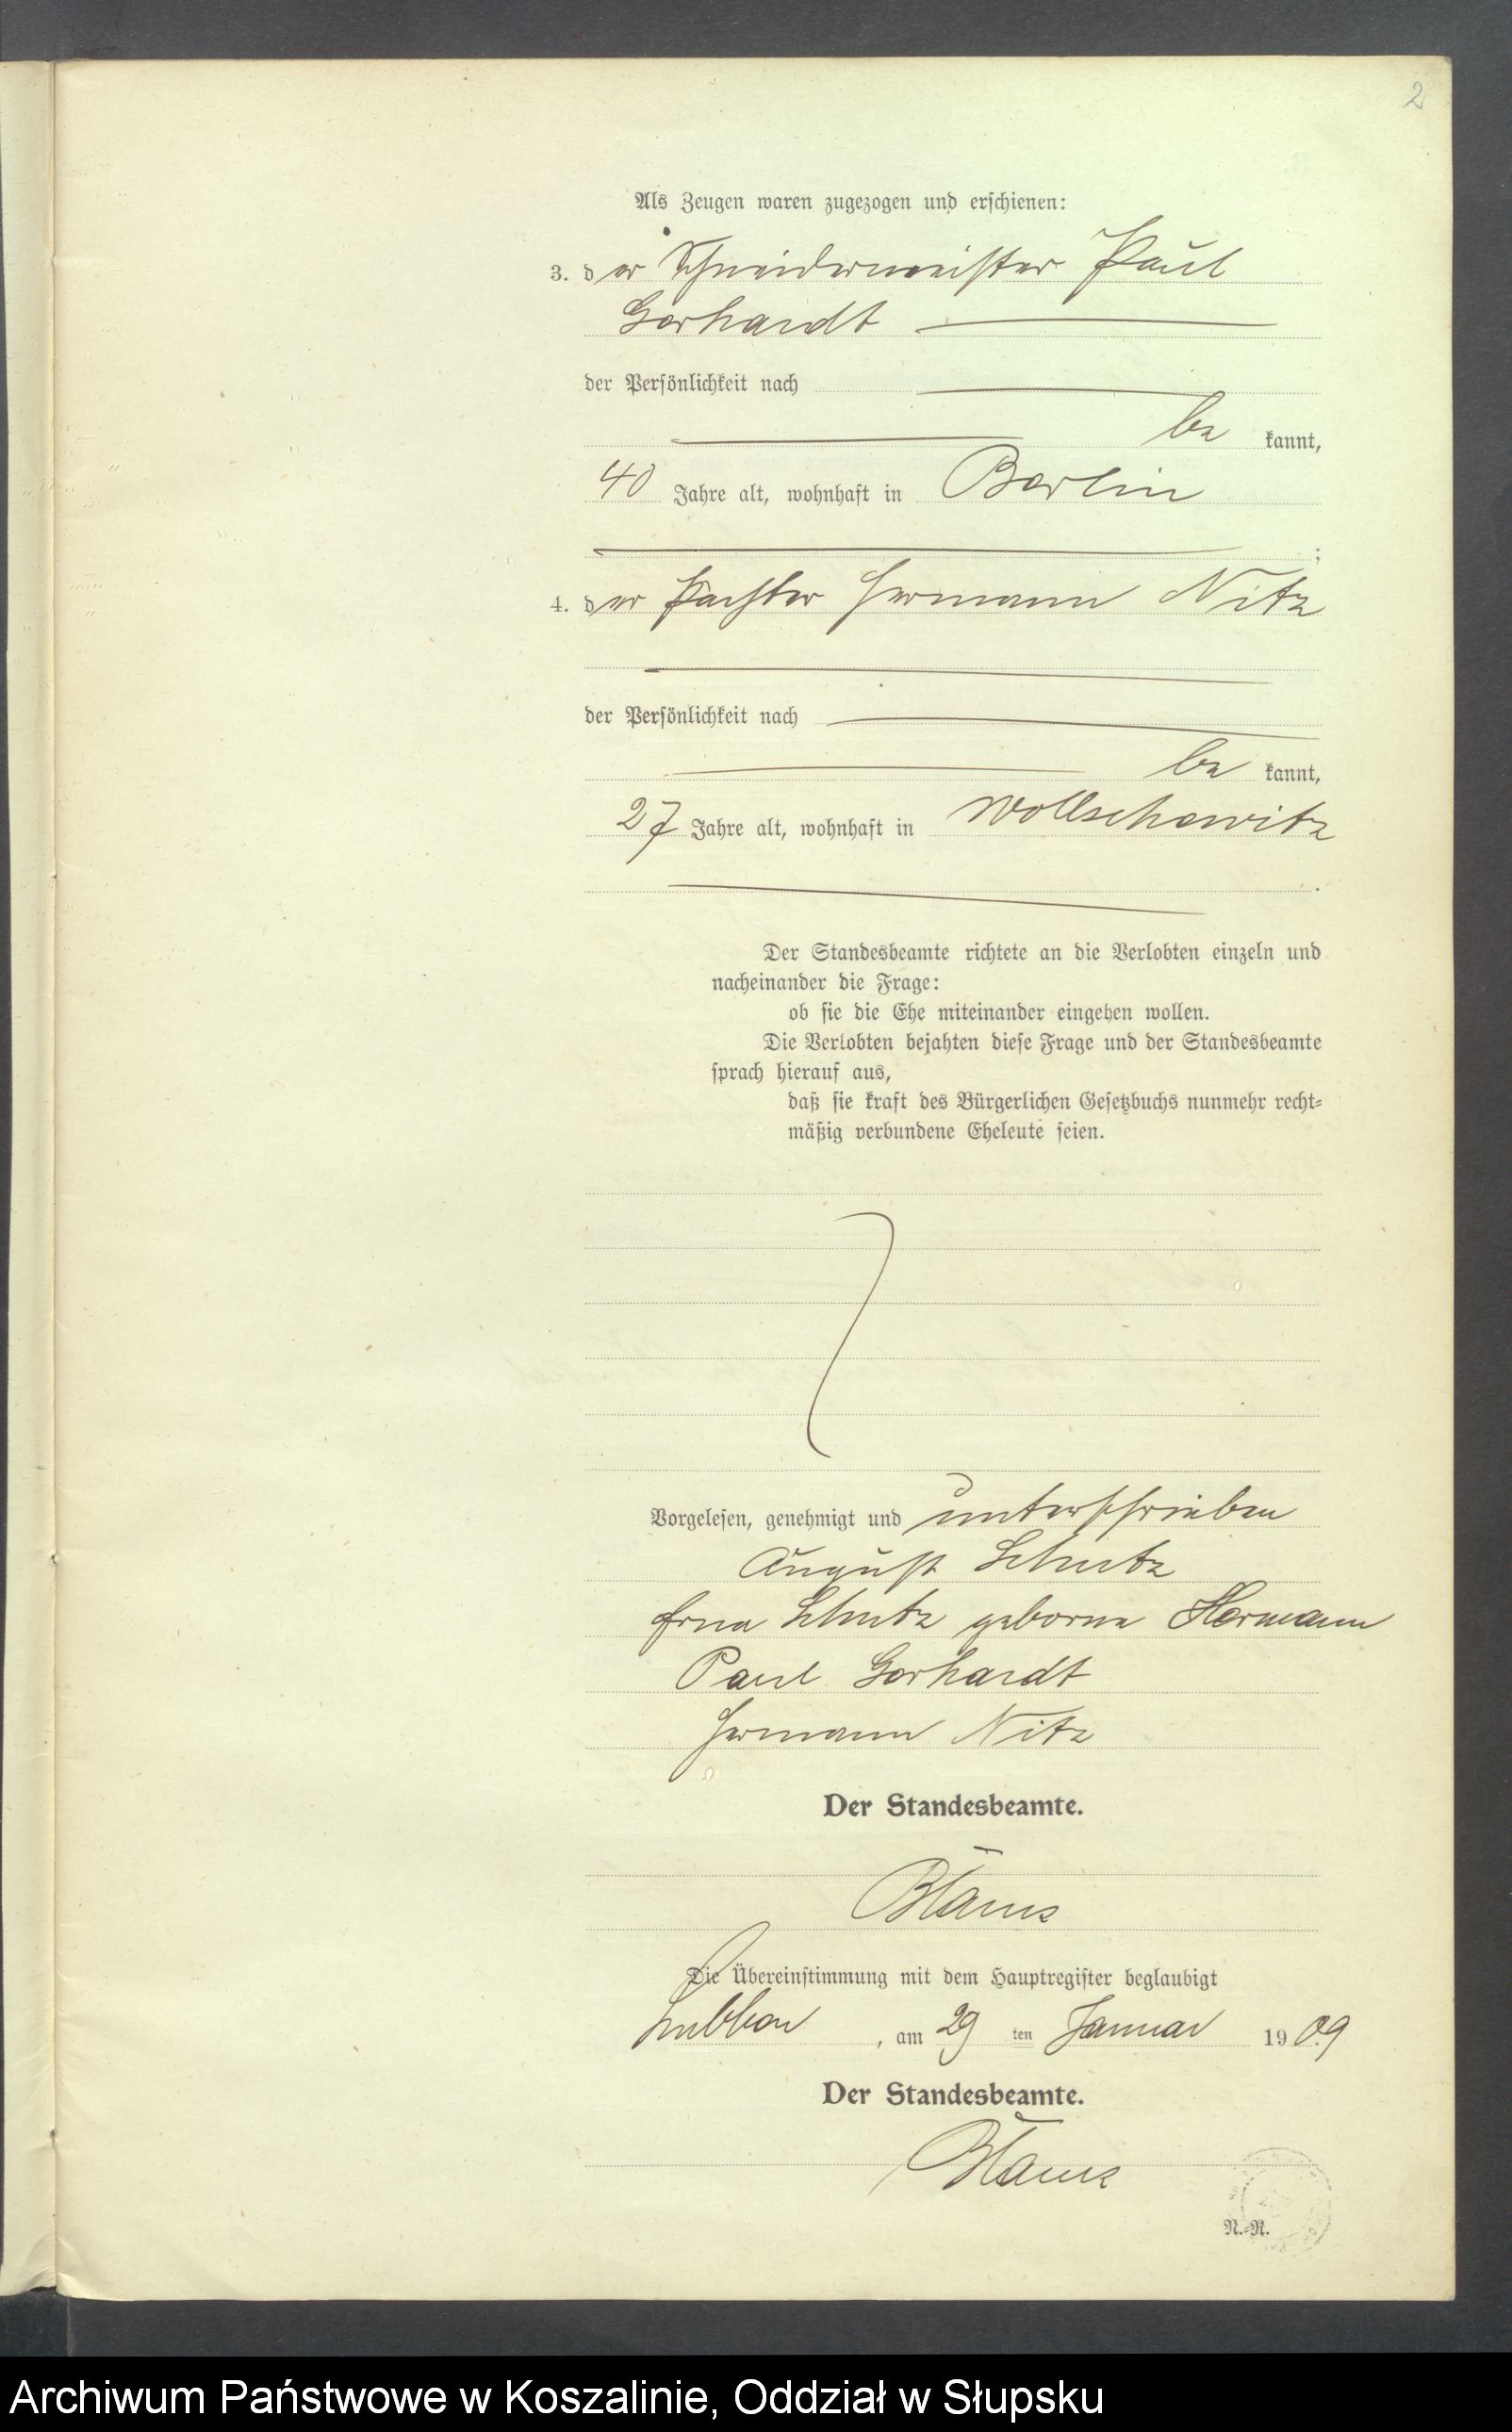 2
Als Zeugen waren zugezogen und erschienen:
3. der Schneidermeister Paul
Gerhardt
der Persönlichkeit nach
be kannt,
40 Jahre alt, wohnhaft in Berlin
;
4. der Pächter Hermann Nitz
der Persönlichkeit nach
be kannt,
27 Jahre alt, wohnhaft in Wollschowitz
.
Der Standesbeamte richtete an die Verlobten einzeln und
nacheinander die Frage:
ob sie die Ehe miteinander eingehen wollen.
Die Verlobten bejahten diese Frage und der Standesbeamte
sprach hierauf aus,
daß sie kraft des Bürgerlichen Gesetzbuchs nunmehr recht-
mäßig verbundene Eheleute seien.
Vorgelesen, genehmigt und unterschrieben
August
geborne Hermann
Paul Gerhardt
Hermann Nitz
Der Standesbeamte.
Die Übereinstimmung mit dem Hauptregister beglaubigt
, am 29 ten Januar 1909
Der Standesbeamte.
N.-R.
Archiwum Państwowe w Koszalinie, Oddział w Słupsku